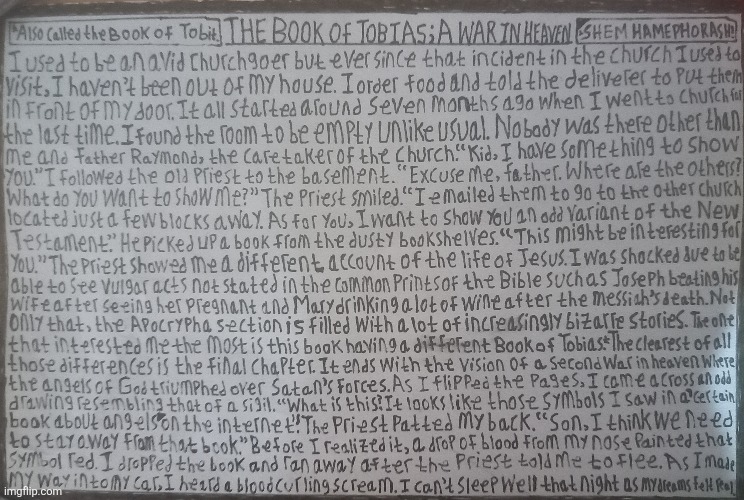 *Also called the Book of Tobit THE BOOK OF TOBIAS; A WAR IN HEAVEN *SHEM HAMEPHORASH
I used to be an avid churchgoer but ever since that incident in the church I used to
visit, I haven't been out of my house. I order food and told the deliverer to put them
in front of my door. It all started around seven months ago when I went to church for
the last time. I found the room to be empty unlike usual. Nobody was there other than
me and Father Raymond, the caretaker of the church. "Kid, I have something to show
you." I followed the old priest to the basement. "Excuse me, father. Where are the others?
What do you want to show me?" The priest smiled. "I emailed them to go to the other church
located just a few blocks away. As for you, I want to show you an odd variant of the New
Testament." He picked up a book from the dusty bookshelves. "This might be interesting for
you." The priest showed me a different account of the life of Jesus. I was shocked due to be
able to see vulgar acts not stated in the common prints of the Bible such as Joseph beating his
wife after seeing her pregnant and Mary drinking a lot of wine after the messiah's death. Not
only that, the Apocrypha section is filled with a lot of increasingly bizarre stories. The one
that interested me the most is this book having a different Book of Tobias* The clearest of all
those differences is the final chapter. It ends with the vision of a second war in heaven where
the angels of God triumphed over Satan's forces. As I flipped the pages, I came across an odd
drawing resembling that of a sigil. "What is this? It looks like those symbols I saw in a certain
book about angels* on the internet." The Priest patted my back. "Son, I think we need
to stay away from that book." Before I realized it, a drop of blood from my nose painted that
symbol red. I dropped the book and ran away after the priest told me to flee. As I made
my way into my car, I heard a bloodcurling scream. I can't sleep well that night as my dreams felt real
imgflip.com